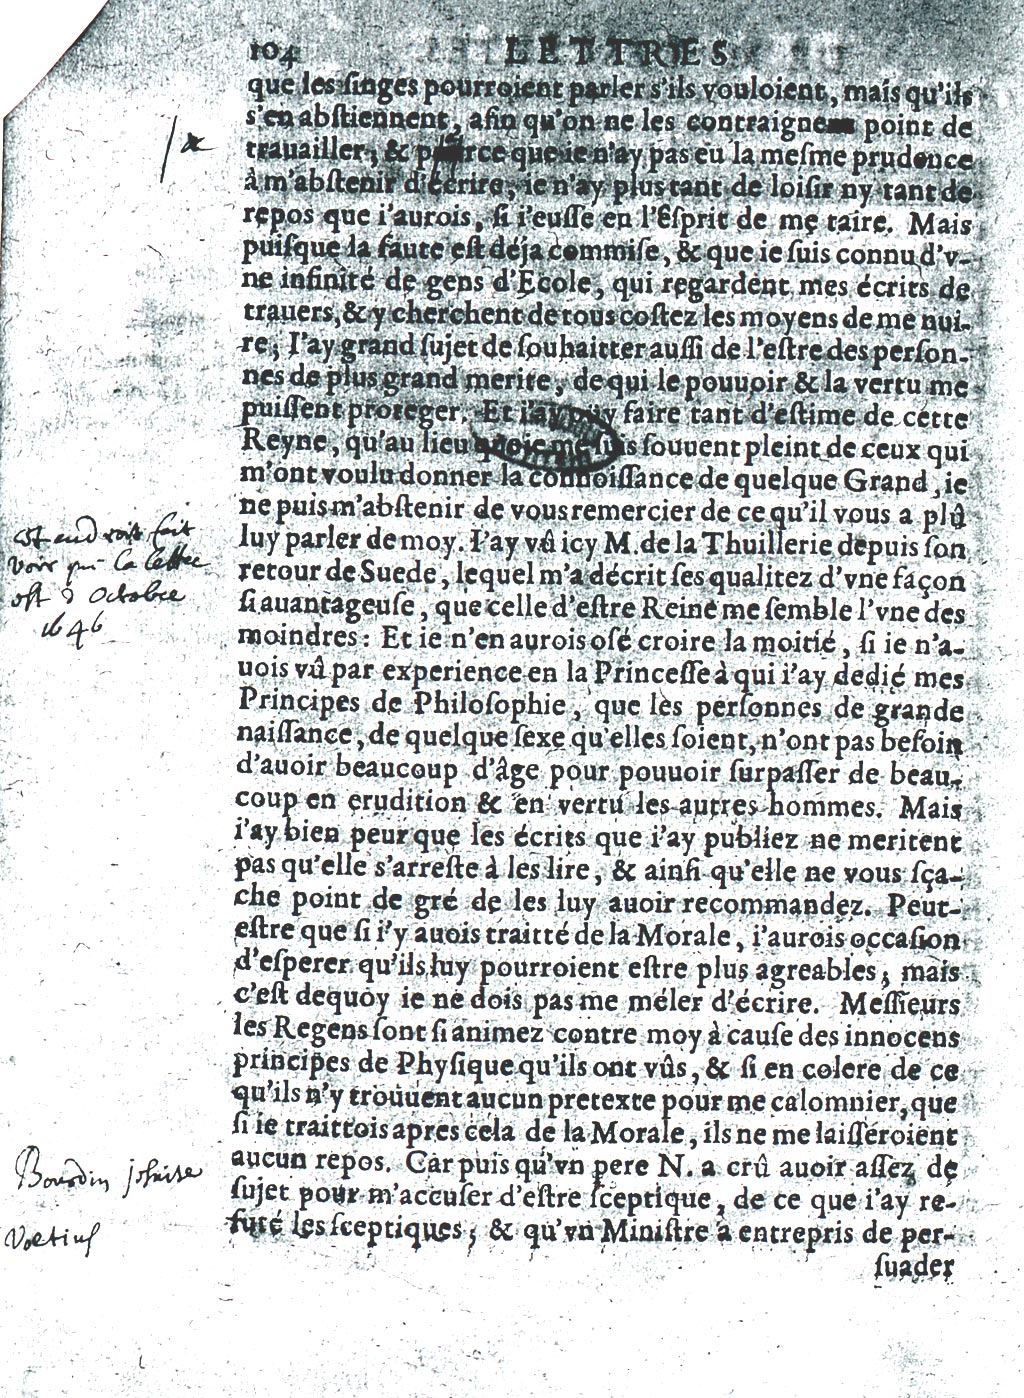 104 LETTRES
que les ſinges pourroient parler s'ils vouloient, mais qu'ils
s'en abſtiennent, afin qu'on ne les contraigne point de
trauailler; & ce que ie n'ay pas eu la meſme prudence
à m'abſtenir d'écrire, ie n'ay plus tant de loiſir ny tant de
repos que i'aurois, ſi i'euſſe en l'Eſprit de me taire. Mais
puiſque la faute eſt déja commiſe, & que ie ſuis connu d'v-
ne infinité de gens d'Ecole, qui regardent mes écrits de
trauers, & y cherchent de tous coſtez les moyens de me nui-
re; I'ay grand ſujet de ſouhaitter auſſi de l'eſtre des perſon-
nes de plus grand merite, de qui le pouuoir & la vertu me
puiſſent proteger. Et i'ay puy faire tant d'eſtime de cette
Reyne, qu'au lieu que ie me ſuis ſouuent pleint de ceux qui
m'ont voulu donner la connoiſſance de quelque Grand, ie
ne puis m'abſtenir de vous remercier de ce qu'il vous a plû
luy parler de moy. I'ay vû icy M. de la Thuillerie depuis ſon
retour de Suede, lequel m'a décrit ſes qualitez d'vne façon
ſi auantageuſe, que celle d'eſtre Reine me ſemble l'vne des
moindres: Et ie n'en aurois oſé croire la moitié, ſi ie n'a-
uois vû par experience en la Princeſſe à qui i'ay dedié mes
Principes de Philoſophie, que les perſonnes de grande
naiſſance, de quelque ſexe qu'elles ſoient, n'ont pas beſoin
d'auoir beaucoup d'âge pour pouuoir ſurpaſſer de beau-
coup en erudition & en vertu les autres hommes. Mais
i'ay bien peur que les écrits que i'ay publiez ne meritent
pas qu'elle s'arreſte à les lire, & ainſi qu'elle ne vous ſça-
che point de gré de les luy auoir recommandez. Peut-
eſtre que ſi i'y auois traitté de la Morale, i'aurois occaſion
d'eſperer qu'ils luy pourroient eſtre plus agreables; mais
c'eſt dequoy ie ne dois pas me méler d'écrire. Meſſieurs
les Regens ſont ſi animez contre moy à cauſe des innocens
principes de Phyſique qu'ils ont vûs, & ſi en colere de ce
qu'ils n'y trouuent aucun pretexte pour me calomnier, que
ſi ie traittois apres cela de la Morale, ils ne me laiſſeroient
aucun repos. Car puis qu'vn pere N. a crû auoir aſſez de
ſujet pour m'accuſer d'eſtre ſceptique, de ce que i'ay re-
futé les ſceptiques; & qu'vn Miniſtre a entrepris de per-
ſuader
cet endroit fait
voir que la lettre
est d octobre
1646
Bourdin jesuise
Voetius